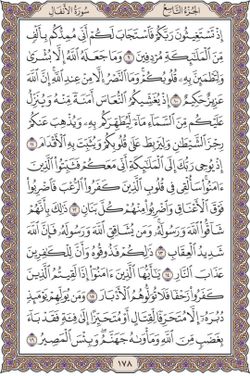 الجزء التاسع سورة الأنفال
إِذْ تَسْتَغِيثُونَ رَبَّكُمْ فَاسْتَجَابَ لَكُمْ أَنِّي مُمِدُّكُمْ بِأَلْفٍ
مِنَ الْمَلَائِكَةِ مُرْدِفِينَ ٩ وَمَا جَعَلَهُ اللَّهُ إِلَّا بُشْرَى
وَلِتَطْمَئِنَّ بِهِ قُلُوبُكُمْ وَمَا النَّصْرُ إِلَّا مِنْ عِنْدِ اللَّهِ إِنَّ اللَّهَ
عَزِيزٌ حَكِيمٌ ١٠ إِذْ يُغَشِّيكُمُ النُّعَاسَ أَمَنَةً مِنْهُ وَيُنَزِّلُ
عَلَيْكُمْ مِنَ السَّمَاءِ مَاءً لِيُطَهِّرَكُمْ بِهِ وَيُذْهِبَ عَنْكُمْ
رِجْزَ الشَّيْطَانِ وَلِيَرْبِطَ عَلَى قُلُوبِكُمْ وَيُثَبِّتَ بِهِ الْأَقْدَامَ ١١
إِذْ يُوحِي رَبُّكَ إِلَى الْمَلَائِكَةِ أَنِّي مَعَكُمْ فَثَبِّتُوا الَّذِينَ
آمَنُوا سَأُلْقِي فِي قُلُوبِ الَّذِينَ كَفَرُوا الرُّعْبَ فَاضْرِبُوا
فَوْقَ الْأَعْنَاقِ وَاضْرِبُوا مِنْهُمْ كُلَّ بَنَانٍ ١٢ ذَلِكَ بِأَنَّهُمْ
شَاقُّوا اللَّهَ وَرَسُولَهُ وَمَنْ يُشَاقِقِ اللَّهَ وَرَسُولَهُ فَإِنَّ اللَّهَ
شَدِيدُ الْعِقَابِ ١٣ ذَلِكُمْ فَذُوقُوهُ وَأَنَّ لِلْكَافِرِينَ
عَذَابَ النَّارِ ١٤ يَا أَيُّهَا الَّذِينَ آمَنُوا إِذَا لَقِيتُمُ الَّذِينَ
كَفَرُوا زَحْفًا فَلَا تُوَلُّوهُمُ الْأَدْبَارَ ١٥ وَمَنْ يُوَلِّهِمْ يَوْمَئِذٍ
دُبُرَهُ إِلَّا مُتَحَرِّفًا لِقِتَالٍ أَوْ مُتَحَيِّزًا إِلَى فِئَةٍ فَقَدْ بَاءَ
بِغَضَبٍ مِنَ اللَّهِ وَمَأْوَاهُ جَهَنَّمُ وَبِئْسَ الْمَصِيرُ ١٦
١٧٨